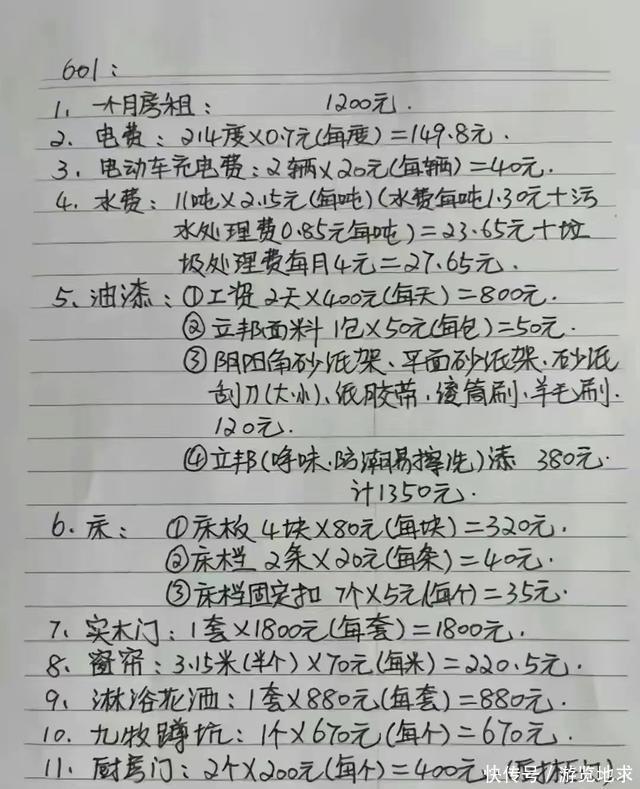 601：
1、一个月房租：1200元.
2、电费：214度×0.7元(每度)=149.8元.
3、电动车充电费：2辆×20元(每辆)=40元.
4、水费：11吨×2.15元(每吨)(水费每吨1.30元+污
水处理费0.85元每吨)=23.65元+垃
圾处理费每月4元=27.65元.
5、油漆：①工资 2天×400元(每天)=800元.
②立邦面料 1包×50元(每包)=50元.
③阴阳角砂纸架、平面砂纸架、砂纸
刮刀(大小)、纸胶带、滚筒刷、羊毛刷.
120元.
④立邦(净味、防潮易擦洗)漆 380元.
计1350元.
6、床：①床板 4块×80元(每块)=320元.
②床栏 2条×20元(每条)=40元.
③床栏固定扣 7个×5元(每个)=35元.
7、实木门：1套×1800元(每套)=1800元.
8、窗帘：3.15米(半个)×70元(每米)=220.5元.
9、淋浴花洒：1套×880元(每套)=880元.
10、九牧蹲坑：1个×670元(每个)=670元.
11、厨房门：2个×200元(每个)=400元
快传号/游览地球